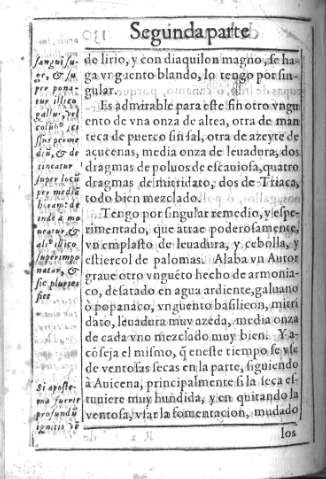 Segunda parte
de lirio, y con diaquilon magno, se ha-
ga vnguento blando, lo tengo por sin-
gular.
Es admirable para este fin otro vngu
ento de vna onza de altea, otra de man
teca de puerco sin sal, otra de azeyte de
açucenas, media onza de leuadura, dos
dragmas de poluos de escauiosa, quatro
dragmas de mitridato, dos de Triaca,
todo bien mezclado.
Tengo por singular remedio, y espe-
rimentado, que atrae poderosamente,
vn emplasto de leuadura, y cebolla, y
estiercol de palomas. Alaba vn Autor
graue otro vnguẽto hecho de armonia-
co, desatado en agua ardiente, galuano
ò popanaco, vnguento basilicon, mitri
dato, leuadura muy azeda, media onza
de cada vno mezclado muy bien. Y a-
cõseja el mismo, q̃ en este tiempo se vse
de ventosas secas en la parte, siguiendo
à Auicena, principalmente si la seca es-
tuuiere muy hundida, y en quitando la
ventosa, vsar la fomentacion, mudado
los
sangui su-
ge, & su
per pona-
tur illico
gallus, vel
&
super locũ
per mediã
ueatur, &
superimpo
natur, &
sic pluries
fiet
Si aposte-
ma fuerit
profundũ